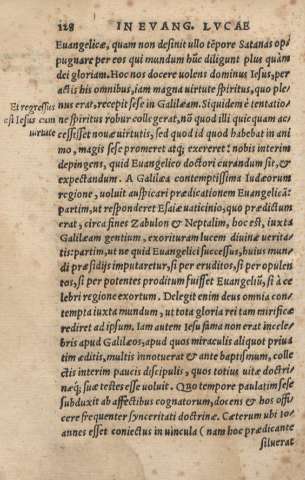 128 IN EVANG. LVCAE
Euangelicæ, quam non definit ullo tẽpore Satanas op
pugnare per eos qui mundum hũc diligunt plus quàm
dei gloriam. Hoc nos docere uolens dominus Iesus, per
actis his omnibus, iam magna uirtute spiritus, quo ple
Et regressus
nus erat, recepit sese in Galilæam. Siquidem è tentatio=
est Iesus cum
ne spiritus robur collegerat, nõ quod illi quicquam ac
uirtute
cessisset nouæ uirtutis, sed quod id quod habebat in ani
mo, magis sese promeret atq; exereret: nobis interim
depingens, quid Euangelico doctori curandum sit, &
expectandum. A Galilæa contemptissima Iudæorum
regione, uoluit auspicari prædicationem Euangelicã:
partim, ut responderet Esaiæ uaticinio, quo prædictum
erat, circa fines Zabulon & Neptalim, hoc est, iuxta
Galilæam gentium, exorituram lucem diuinæ uerita=
tis: partim, ut ne quid Euangelici successus, huius mun=
di præsidijs imputaretur, si per eruditos, si per opulen
tos, si per potentes proditum fuisset Euangeliũ, si à ce
lebri regione exortum. Delegit enim deus omnia con=
tempta iuxta mundum, ut tota gloria rei tam mirificæ
rediret ad ipsum. Iam autem Iesu fama non erat incele=
bris apud Galilæos, apud quos miraculis aliquot priua
tim æditis, multis innotuerat & ante baptismum, colle
ctis interim paucis discipulis, quos totius uitæ doctri=
næq; suæ testes esse uoluit. Quo tempore paulatim sese
subduxit ab affectibus cognatorum, docens & hos offi
cere frequenter synceritati doctrinæ. Cæterum ubi Io
annes esset coniectus in uincula ( nam hoc prædicante
siluerat